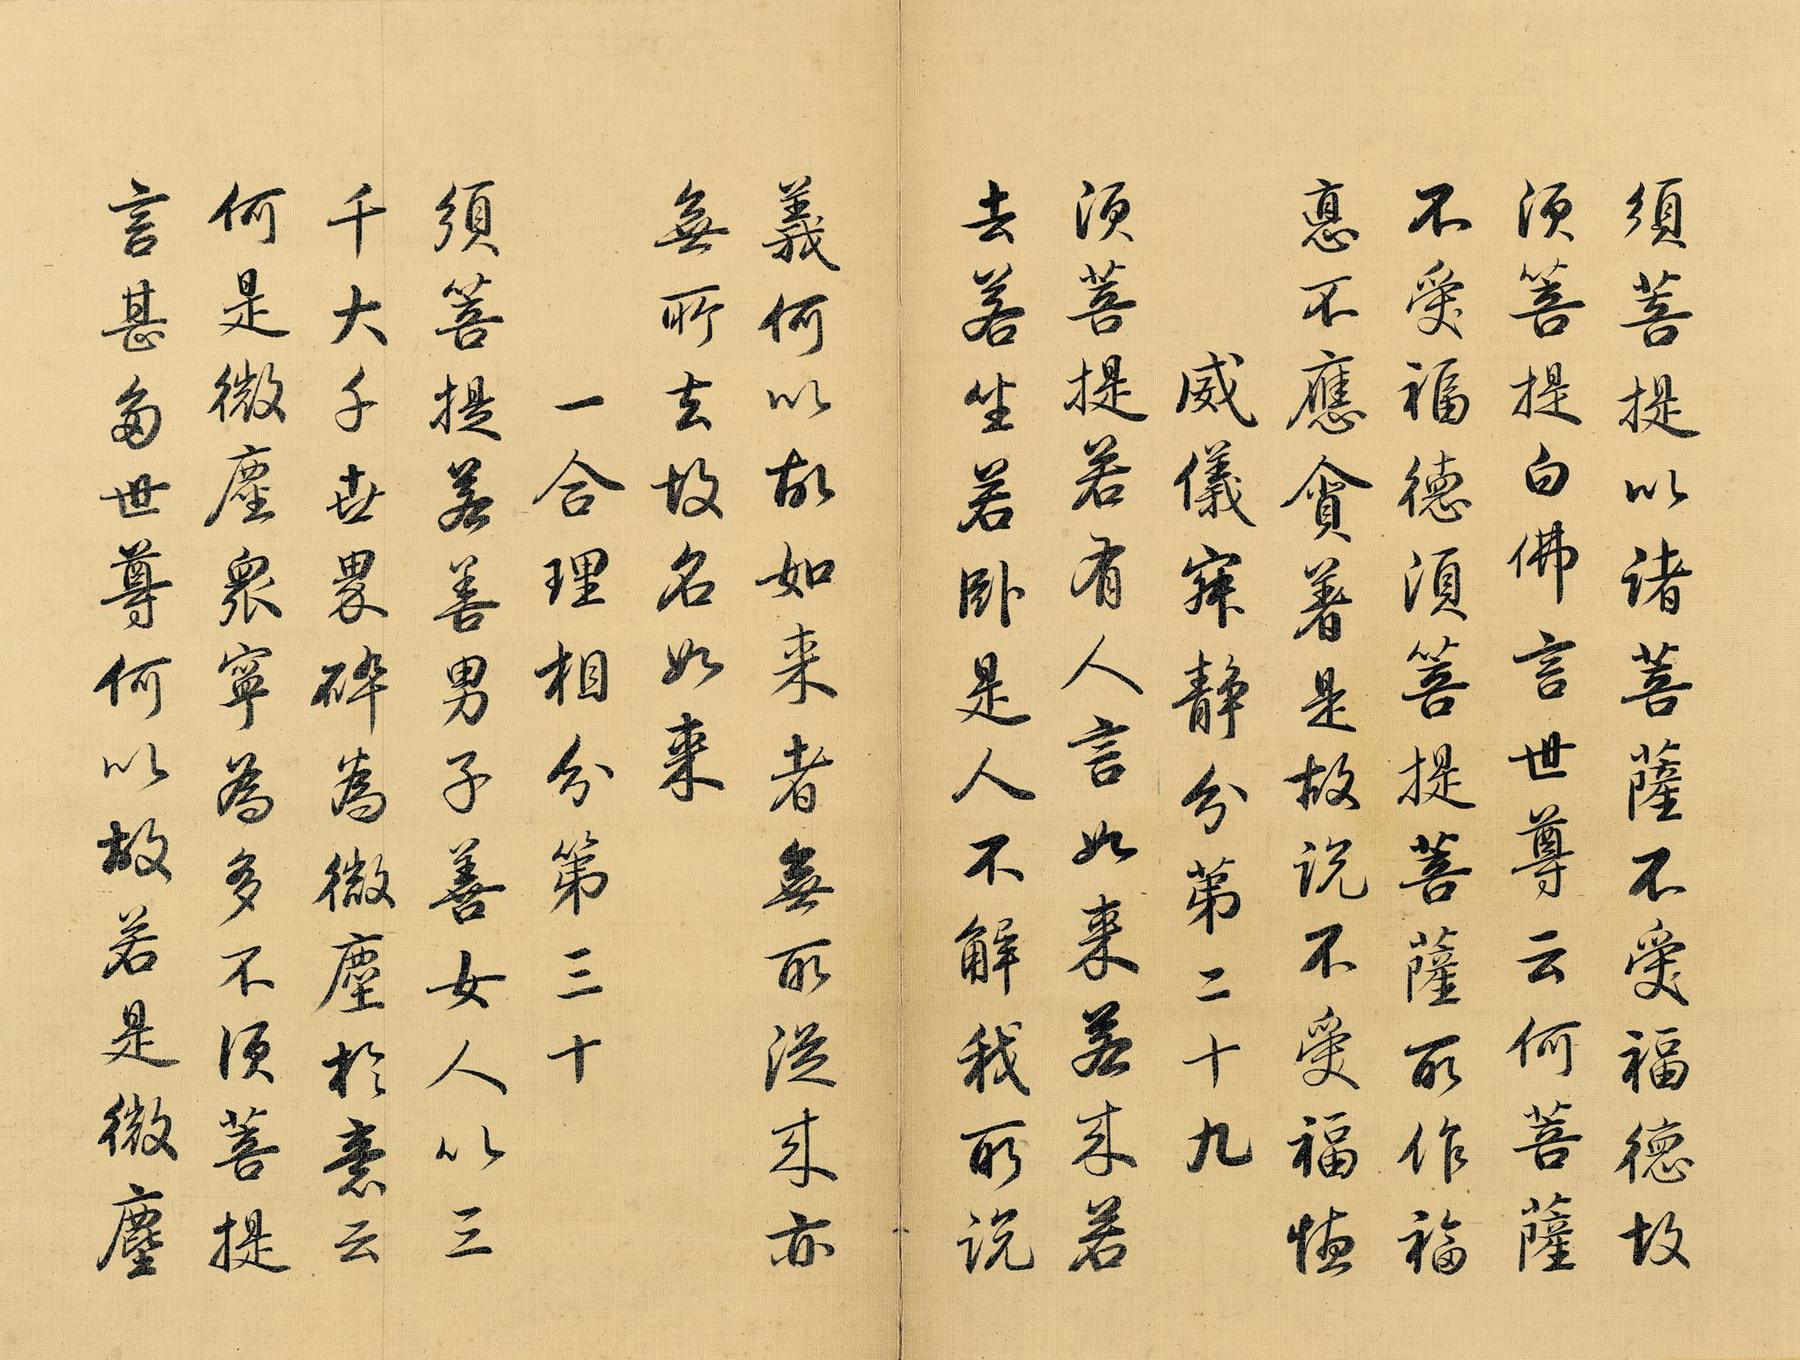 須菩提以諸菩薩不受福德故
須菩提白佛言世尊云何菩薩
不受福德須菩提菩薩所作福
悳不應貪著是故說不受福德
威儀寂靜分第二十九
須菩提若有人言如来若来若
去若坐若臥是人不解我所說
義何以故如来者無所從来亦
無所去故名如来
一合理相分第三十
須菩提若善男子善女人以三
千大千世界碎為微塵於意云
何是微塵衆寧為多不須菩提
言甚多世尊何以故若是微塵